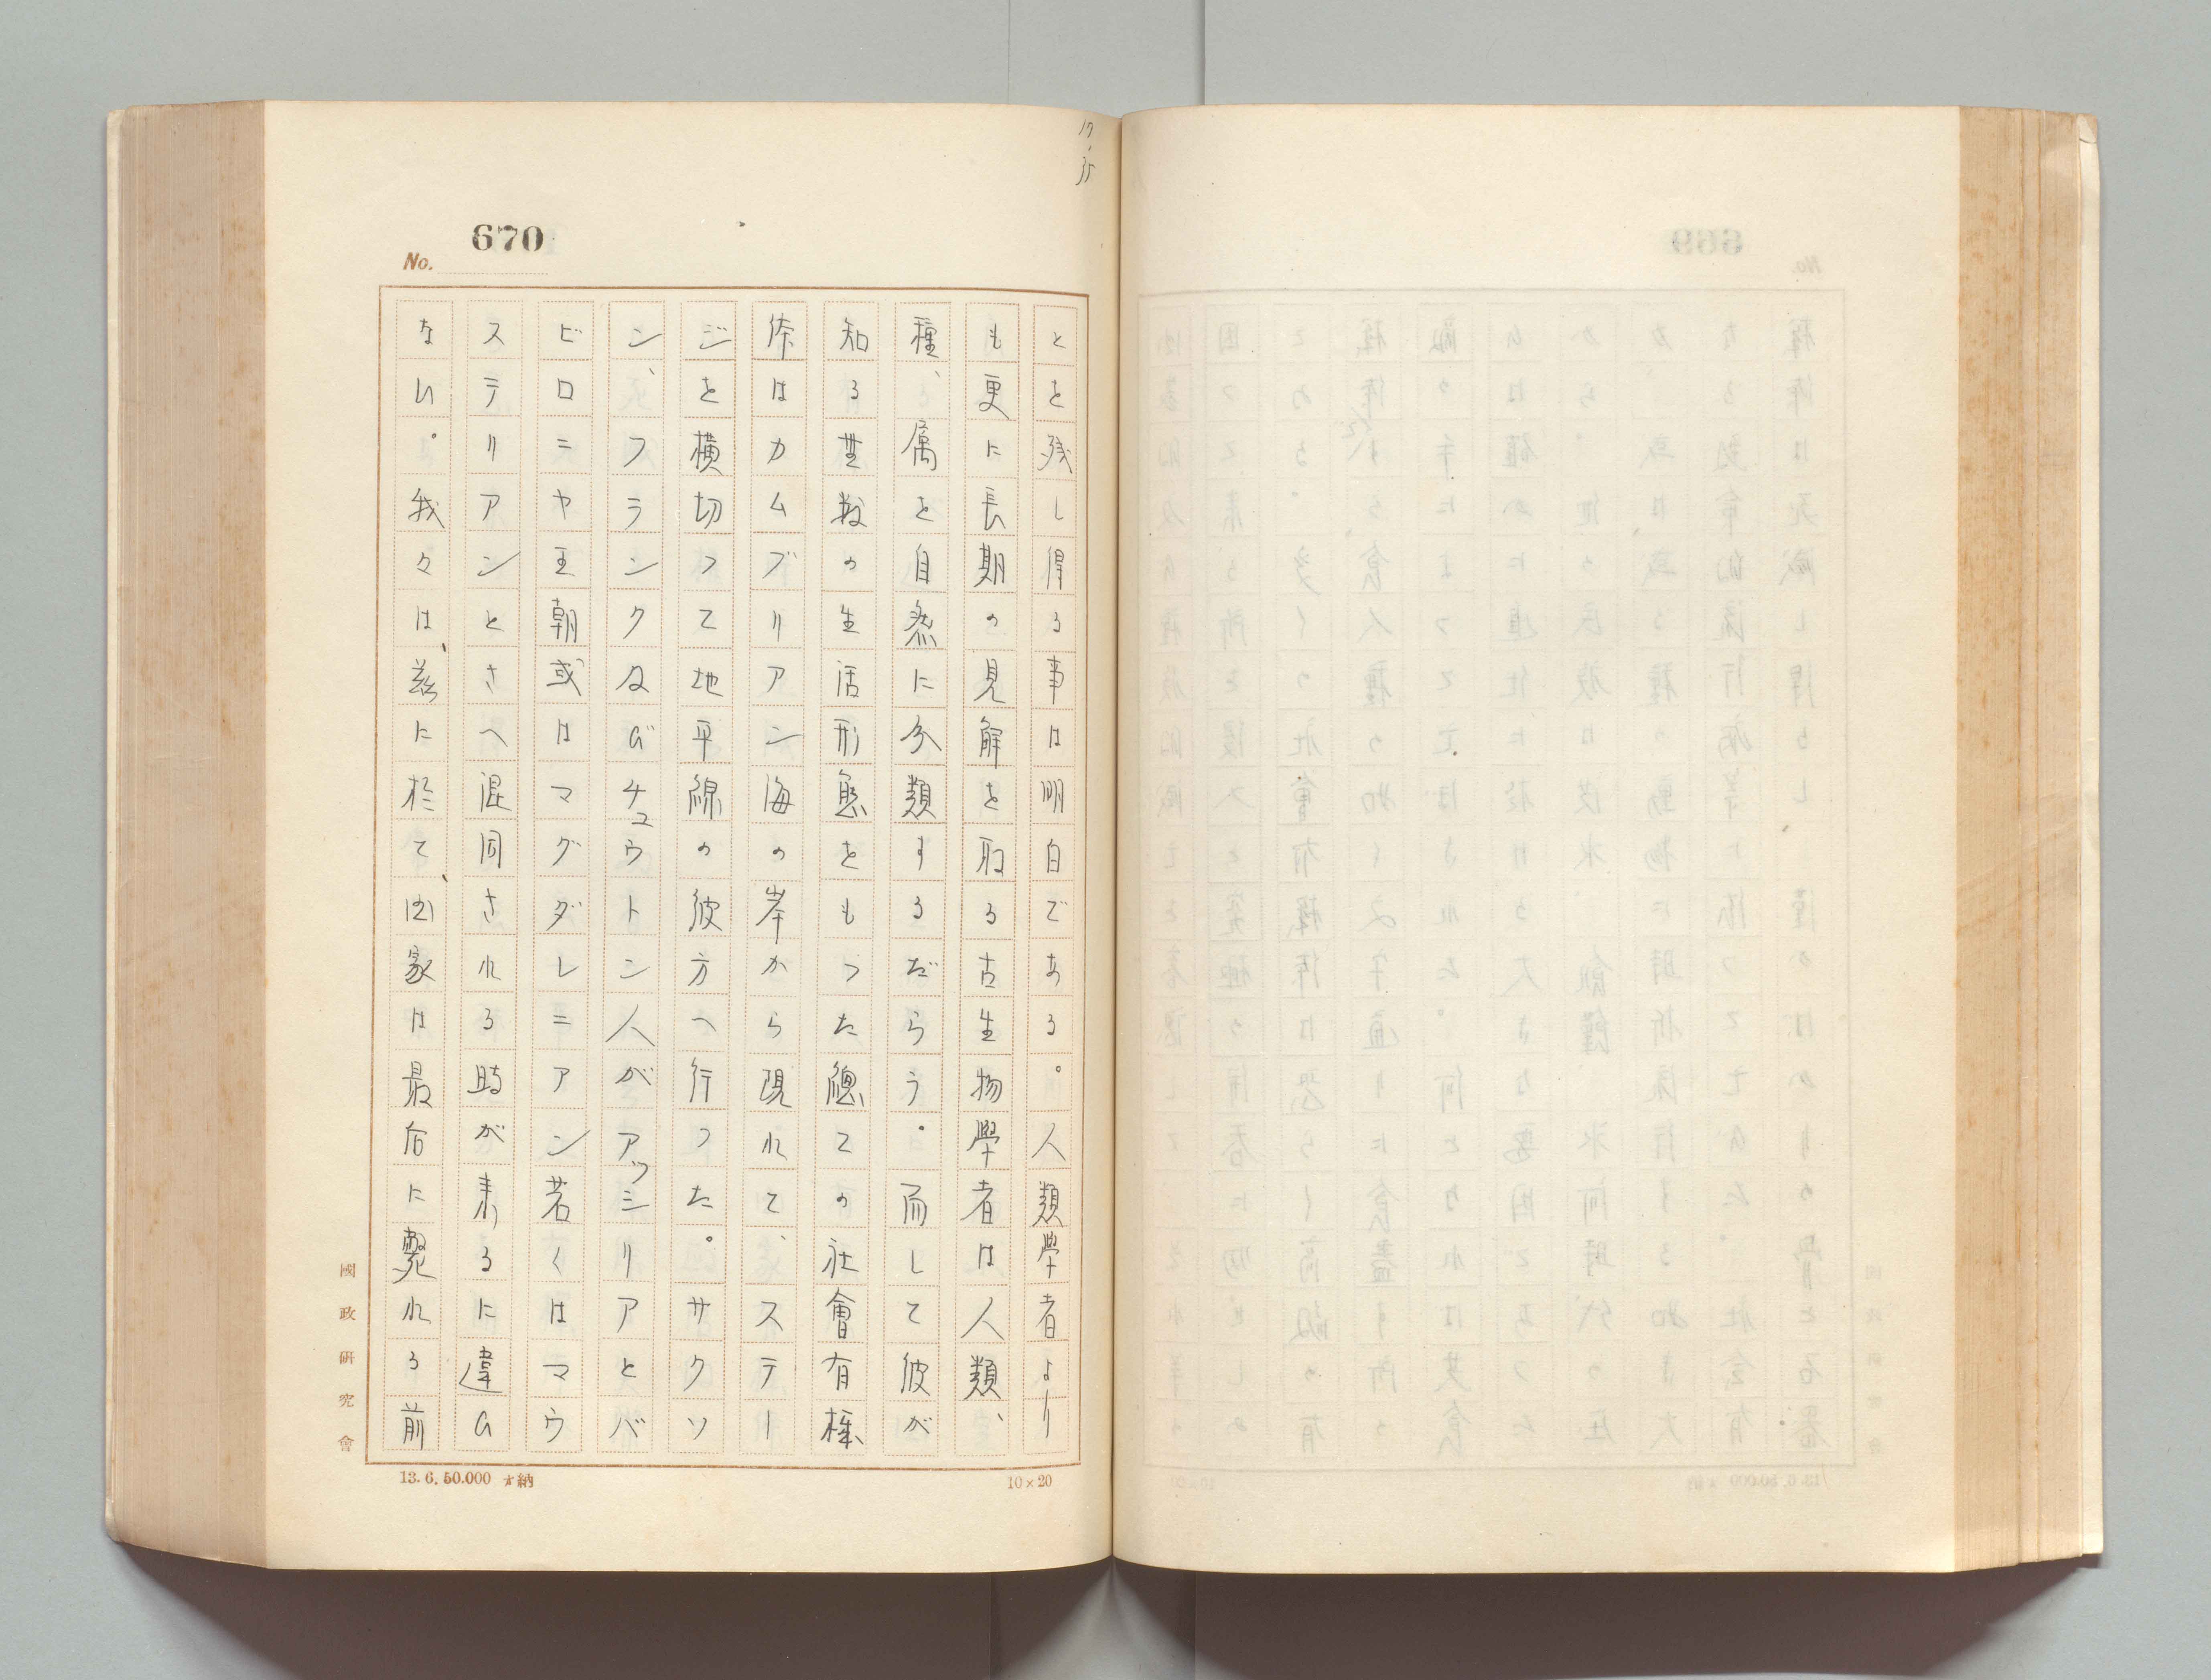 17.35
670
No.
とを残し得る事は明白である。人類學者より
も更に長期の見解を取る古生物學者は人類、
種、属を自然に分類するだらう。而して彼が
知る無数の生活形態をもつた總ての社會有機
体はカムブリアン海の岸から現れて、ステー
ジを横切つて地平線の彼方へ行つた。サクソ
ン、フランク及びチュウトン人がアッシリアとバ
ビロニヤ王朝或はマグダレニアン若くはマウ
ステリアンとさへ混同される時が来るに違ひ
ない。我々は、茲に於て、国家は最后に斃れる前
國政研究會
13.6.50.000 納
10×20